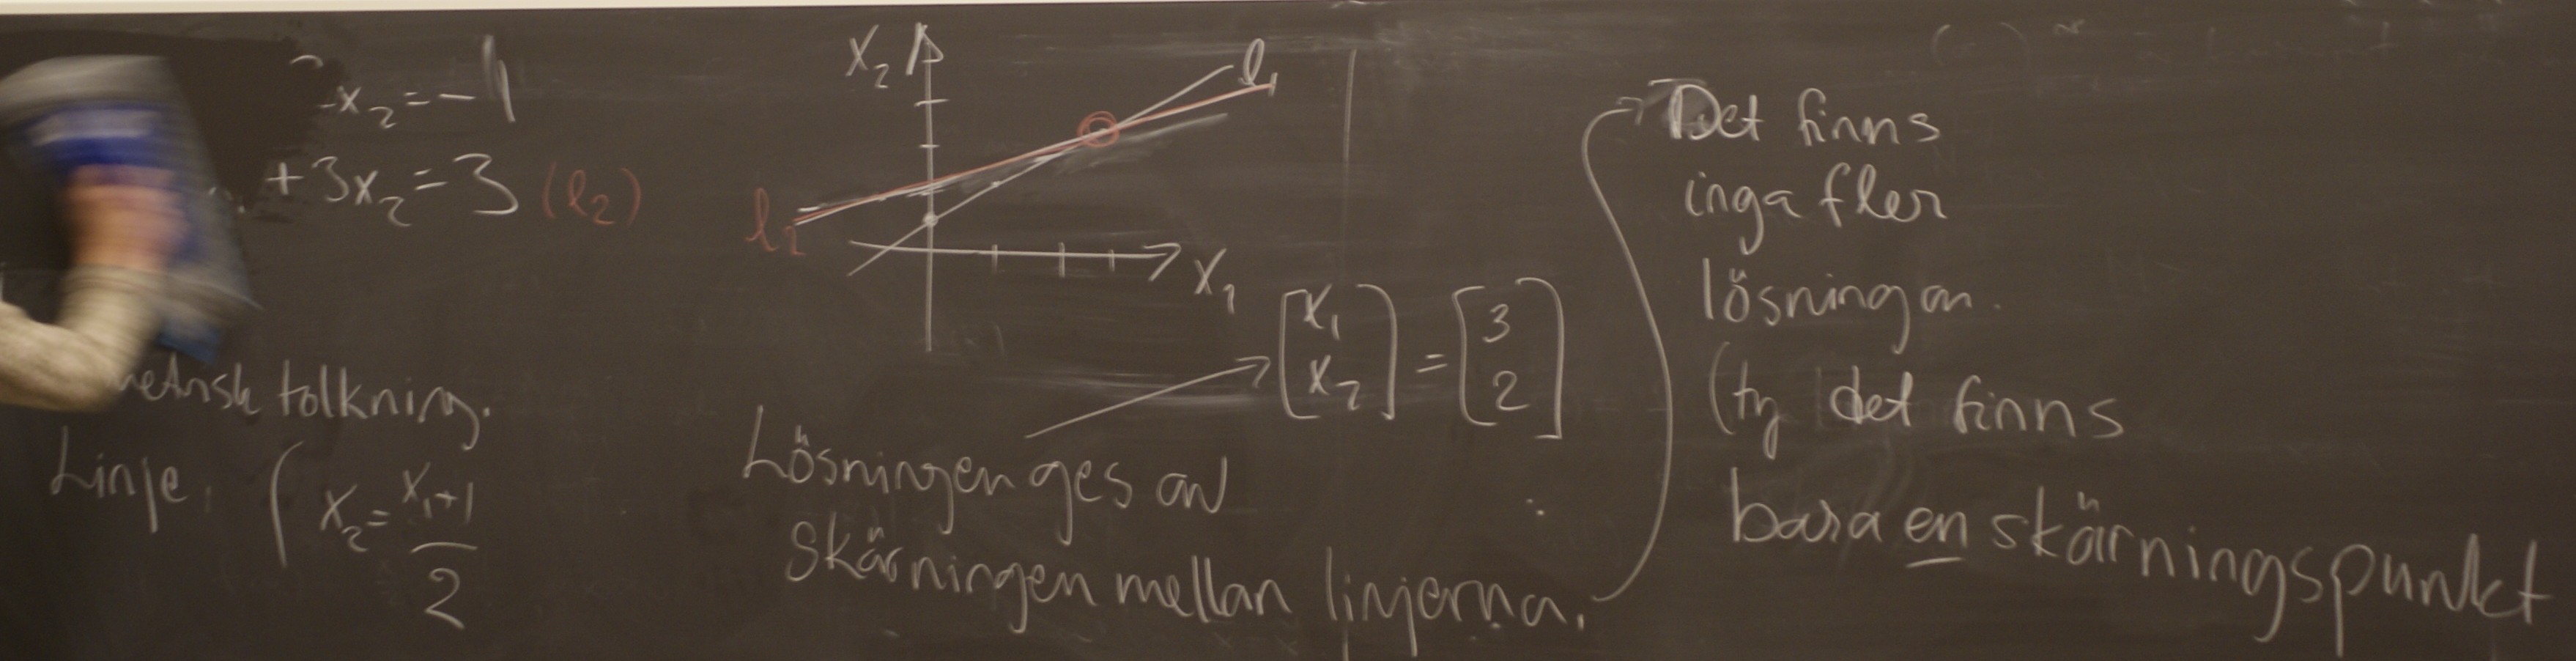 x₂=-1
+3x₂=3 (l₂)
tolkning.
Linje, ( x₂= x₁+1
2
x₂
l₁
l₂
x₁
[x₁ x₂] = [3 2]
Lösningen ges av
Skärningen mellan linjerna.
Det finns
inga fler
lösningar.
(ty det finns
bara en skärningspunkt